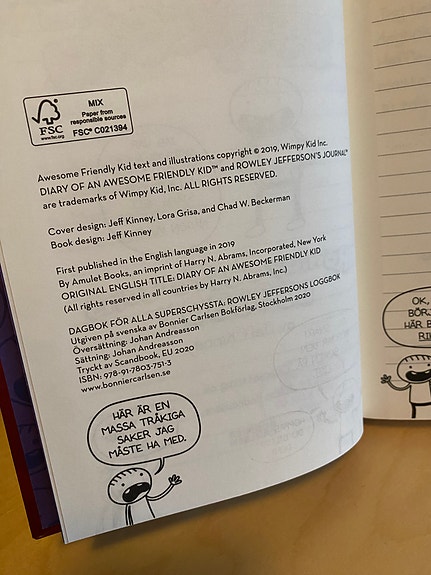 MIX
Paper from
responsible sources
FSC® C021394
FSC
www.fsc.org
Awesome Friendly Kid text and illustrations copyright © 2019, Wimpy Kid Inc.
DIARY OF AN AWESOME FRIENDLY KID™ and ROWLEY JEFFERSON'S JOURNAL™
are trademarks of Wimpy Kid, Inc. ALL RIGHTS RESERVED.
Cover design: Jeff Kinney, Lora Grisa, and Chad W. Beckerman
Book design: Jeff Kinney
First published in the English language in 2019
By Amulet Books, an imprint of Harry N. Abrams, Incorporated, New York
ORIGINAL ENGLISH TITLE: DIARY OF AN AWESOME FRIENDLY KID
(All rights reserved in all countries by Harry N. Abrams, Inc.)
DAGBOK FÖR ALLA SUPERSCHYSSTA: ROWLEY JEFFERSONS LOGGBOK
Utgiven på svenska av Bonnier Carlsen Bokförlag, Stockholm 2020
Översättning: Johan Andreasson
Sättning: Johan Andreasson
Tryckt av Scandbook, EU 2020
ISBN: 978-91-7803-751-3
www.bonniercarlsen.se
HÄR ÄR EN
MASSA TRÅKIGA
SAKER JAG
MÅSTE HA MED.
OK,
BÖRJ
HÄR B
RI